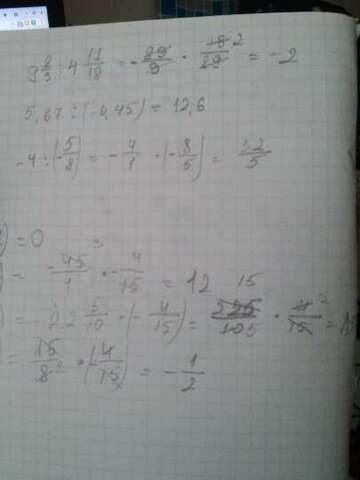 9 8/9 : 4 17/18 = - 89/9 · 18 2/89 = -2
5,67 : (-0,45) = 12,6
-4 : (-5/8) = -4/1 · (-8/5) = 32/5
) = 0
) = -45/1 3 · -4/15 = 12
) = -22 5/10 · (-4/15) = 225/105 15 · 4 2/15 =
= 15/8 2 · (-4/15) = -1/2